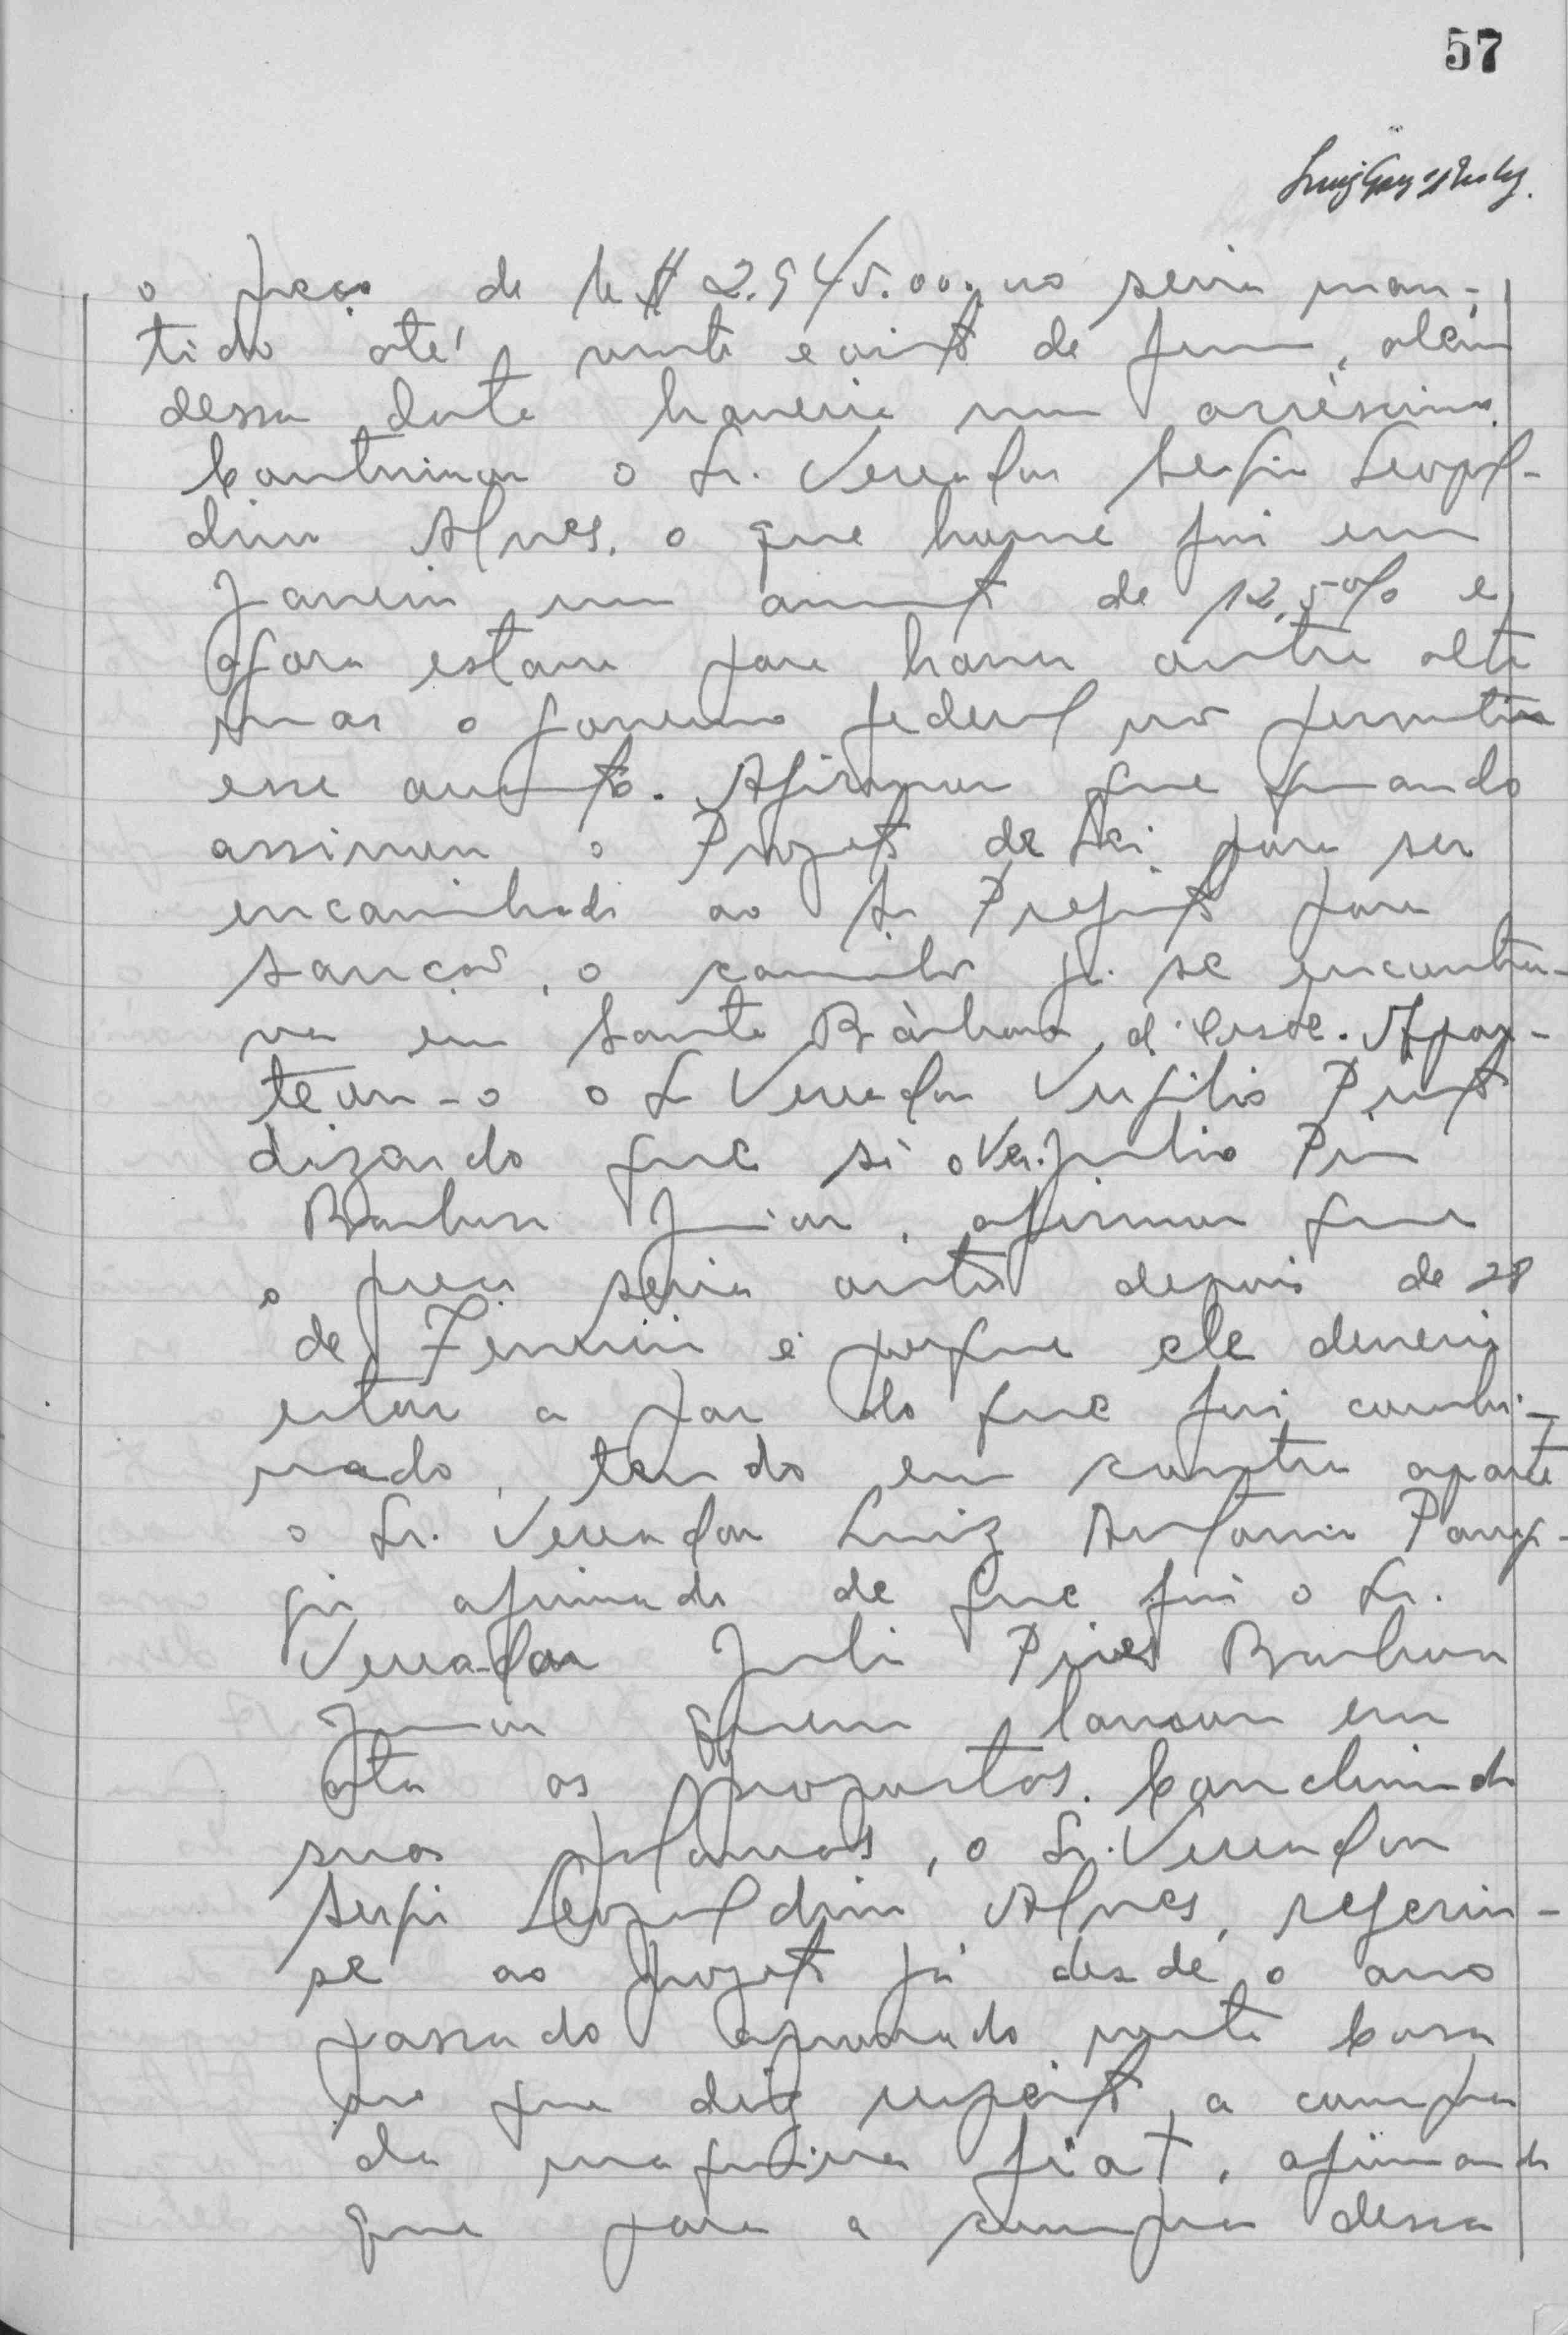 57
o preço de Cr$ 2.945.00, no seria man-
tido até vinte e oito de , além
dessa data haveria um acréscimo.
Continuou o Sr. Vereador Sergio Leopol-
dino Alves, o que houve foi em
Janeiro um aumento de 12,5% e
agora estava para haver outra alta
mas o governo federal não permitiu
esse aumento. Afirmou que quando
assinou o Projeto de Lei para ser
encaminhado ao Sr Prefeito para
sanção, o caminhão já se encontra-
va em Santa Bárbara d'Oeste. Apar-
teou-o o Sr Vereador Virgilio Pinto
dizendo que si o Ver. Julio Pires
Barbosa Junior, afirmou que
o preço seria outro depois de 28
de Fevereiro é porque ele deveria
estar a par do que foi combi-
nado, tendo em contra aparte
o Sr. Vereador Luiz Antonio
afirmado de que foi o Sr.
Vereador Julio Pires Barbosa
Junior quem lançou em
ata as propostas. Concluindo
suas palavras, o Sr. Vereador
Sergio Leopoldino Alves, referiu-
se ao projeto já desde o ano
passado aprovado nesta Casa
no que diz respeito a compra
da maquina fiat, afirmando
que para a compra dessa